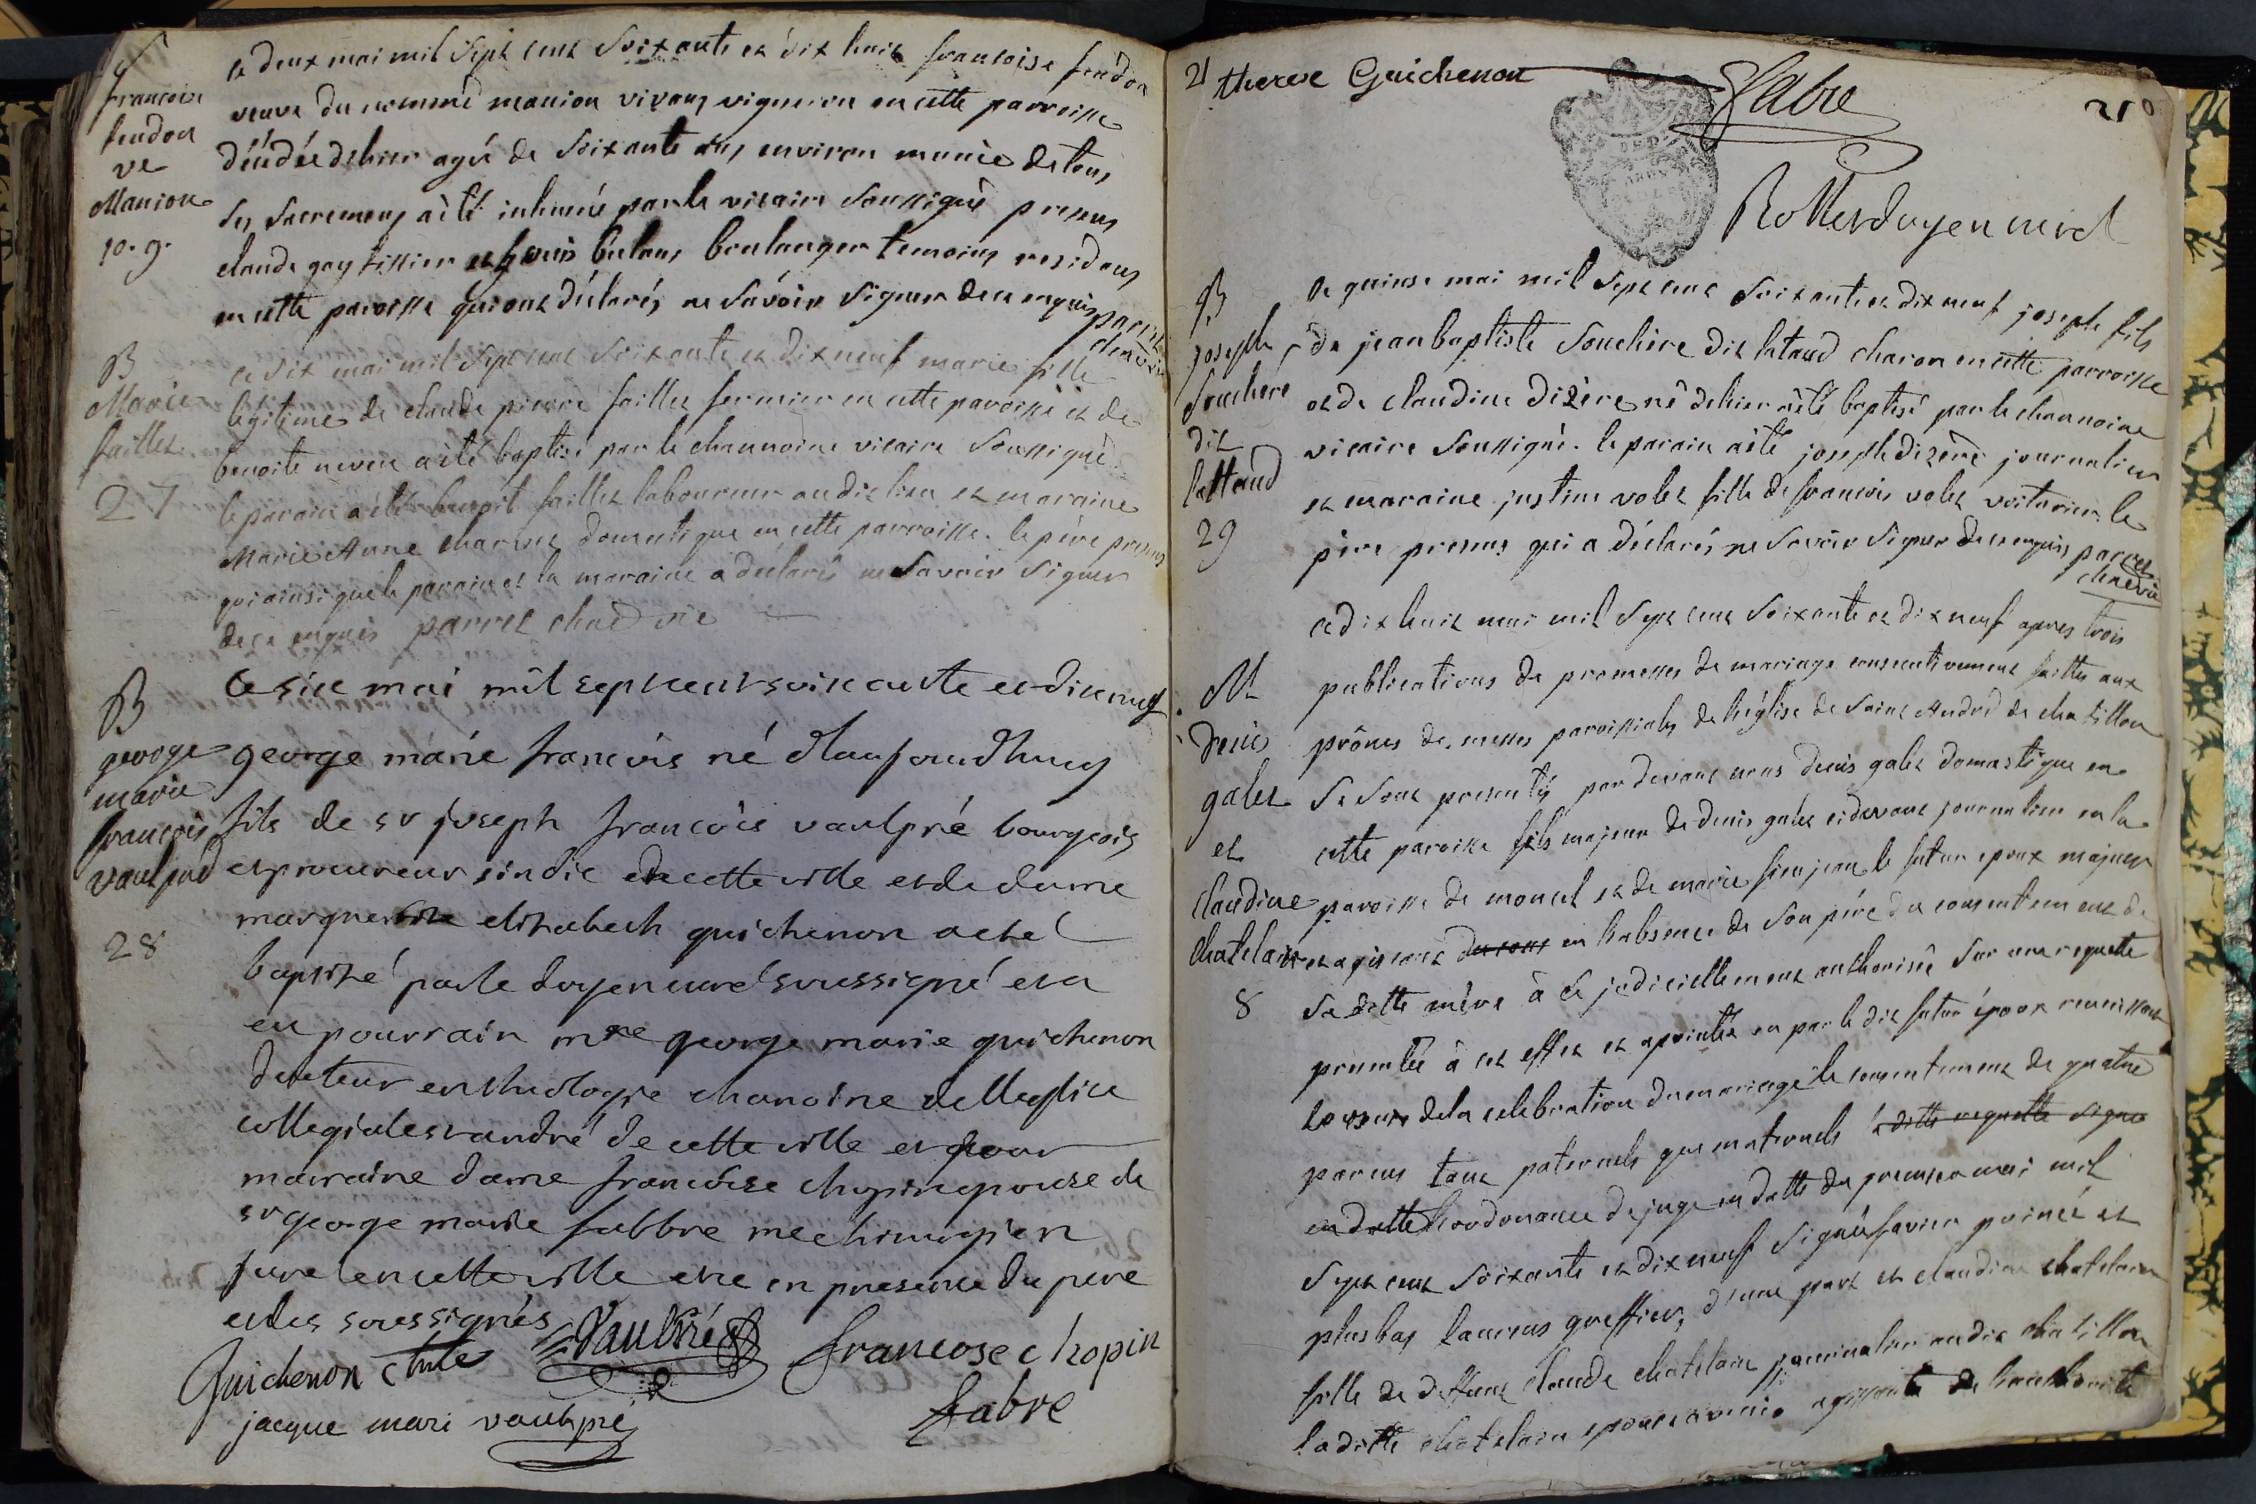 S
francoise
feudon
ve
Manion
10. g.
ce deux mai mil sept cent soixante et dix huit francoise feudon
veuve du nommé manion vivant vigneron en cette parroisse
décédée dehier agée de soixante ans environ munie de tous
ses sacremens a été inhumée par le vicaire soussigné presens
claude gay tissier et louis bulans boulanger temoins residans
en cette paroisse qui ont déclarés ne sávoir signer de ce enquis parret
chan vic
B
Marie
faillet
27
ce six mai mil sept cent soixante et dix neuf marie fille
legitime de claude pierre faillet fermier en cette paroisse et de
benoite neveu a été baptisé par le channoine vicaire soussigné.
le parain a été benoit faillet laboureur audit lieu et maraine
Marie Anne charvet domestique en cette parroisse. le père presens
qui ainsi que le parain et la maraine a déclarés ne savoir signer
de ce enquis parret chan vic
B
george
marie
francois
vaulpré
28
Ce six mai mil sept cent soixante et dix neuf
george marie francois né d'laujourdhuy
fils de sr joseph francois vaulpré bourgeois
et procureur sindic de cette ville et de dame
marguerite elizabeth guichenon a eté
baptisé par le doyen curé soussigné et a
eu pour rain mre george marie guichenon
docteur en theologie chanoine de lleglise
collegiale st andré de cette ville et pour
marraine dame francoise chopin epouse de
sr george marie fabbre me chirurgien
juré en cette ville et ce en presence du pere
et des soussignés
Guichenon Vaulpré francose chopin
jacque mari vaulpré fabre
21 therese Guichenon fabre 21
Rollet doyen curé
B
joseph
souchere
dit
lattaud
29
ce quinse mai mil sept cent soixante et dix neuf joseph fils
de jean baptiste souchère dit lataud charon en cette parroisse
et de claudine dizère né dehier a été baptisé par le channoine
vicaire soussigné. le parain a été joseph dizère journalier
et maraine justine volet fille de francois volet voiturier. le
père presens qui a déclarés ne savoir signer de ce enquis parret
chan vic
M
denis
galet
et
claudine
chatelain
8
ce dix huit mai mil sept cent soixante et dix neuf apres trois
publications de promesses de mariage consecutivement faittes aux
prônes des messes paroissiales de l'église de saint André de chatillon
se sont presentés par devant nous denis galet domastique en
cette paroisse fils majeur de denis galet cidevant journalier en la
paroisse de moncel et de marie jean le futur epoux majeur
et agissant du cons en l'absence de son père du consentement de
sa ditte mère à ce judiciellement authorisée sur une requette
presentée à cet effet et apointée par le dit futur époux
de la celebration du mariage le consentement de quatre
parens tant paternels que maternels la ditte requette signe
en datte l'ordonance de juge en datte du premier mai mil
sept cent soixante et dix neuf signée favier et
plus bas greffier, d'une part et claudine chatelain
fille de deffunt claude chatelain journalier audit chatillon
la ditte chatelain agissante de l'authorité